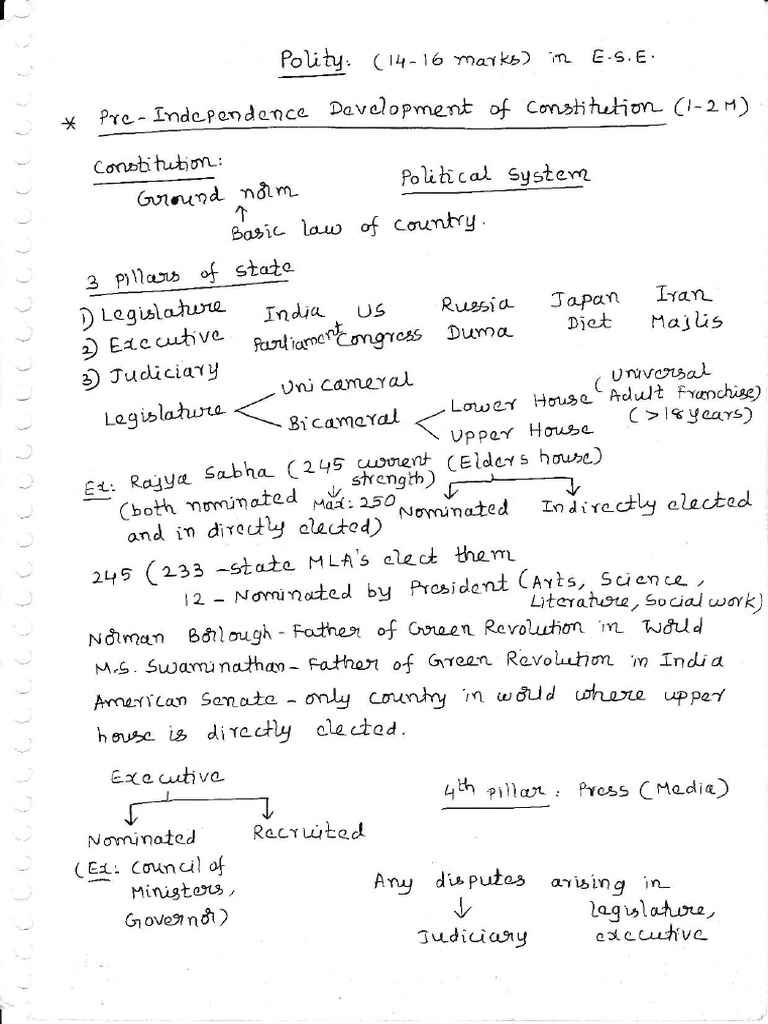 Polity: (14-16 marks) in E.S.E.
* Pre-Independence Development of Constitution (1-2 M)
Constitution:
Political System
Ground norm
↑
Basic law of country.
3 Pillars of state
1) Legislature India US Russia Japan Iran
2) Executive Parliament Congress Duma Diet Majlis
3) Judiciary
Legislature
Unicameral
Bicameral
Lower House (Universal Adult Franchise) (>18 years)
Upper House
Ex: Rajya Sabha (245 current strength) (Elders house)
↓
Max: 250
(both nominated
and in directly elected)
Nominated Indirectly elected
245 (233 - state MLA's elect them
12 - Nominated by President (Arts, Science,
Literature, Social work)
Norman Borlough - Father of Green Revolution in World
M.S. Swaminathan - Father of Green Revolution in India
American Senate - only country in world where upper
house is directly elected.
Executive
4th pillar: Press (Media)
Nominated Recruited
(Ex: Council of
Ministers,
Governor)
Any disputes arising in
↓ legislature,
Judiciary executive